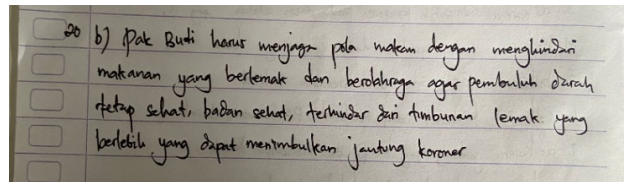 20 b) Pak Budi harus menjaga pola makan dengan menghindari
makanan yang berlemak dan berolahraga agar pembuluh darah
tetap sehat, badan sehat, terhindar dari timbunan lemak yang
berlebih yang dapat menimbulkan jantung koroner